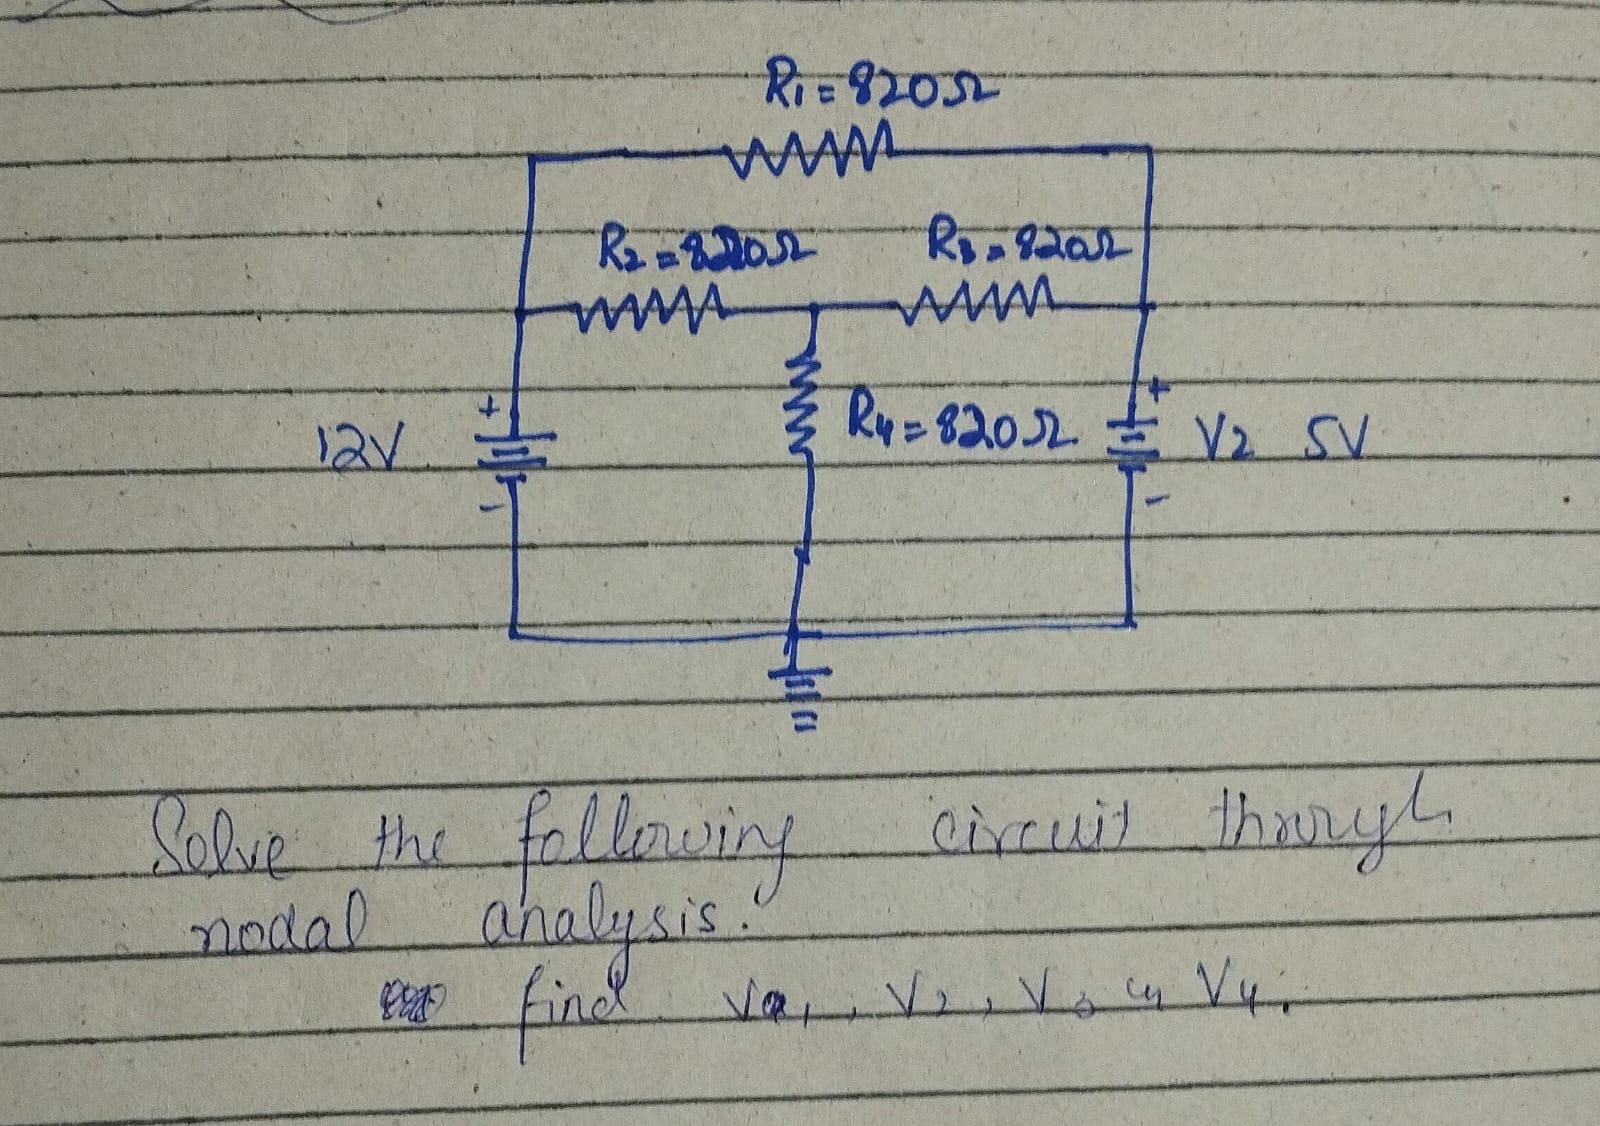 R1 = 820Ω
R2 = 820Ω R3 = 820Ω
+ +
12V R4 = 820Ω V2 5V
- -
Solve the following circuit through
nodal analysis.
find V1, V2, V3 & V4.